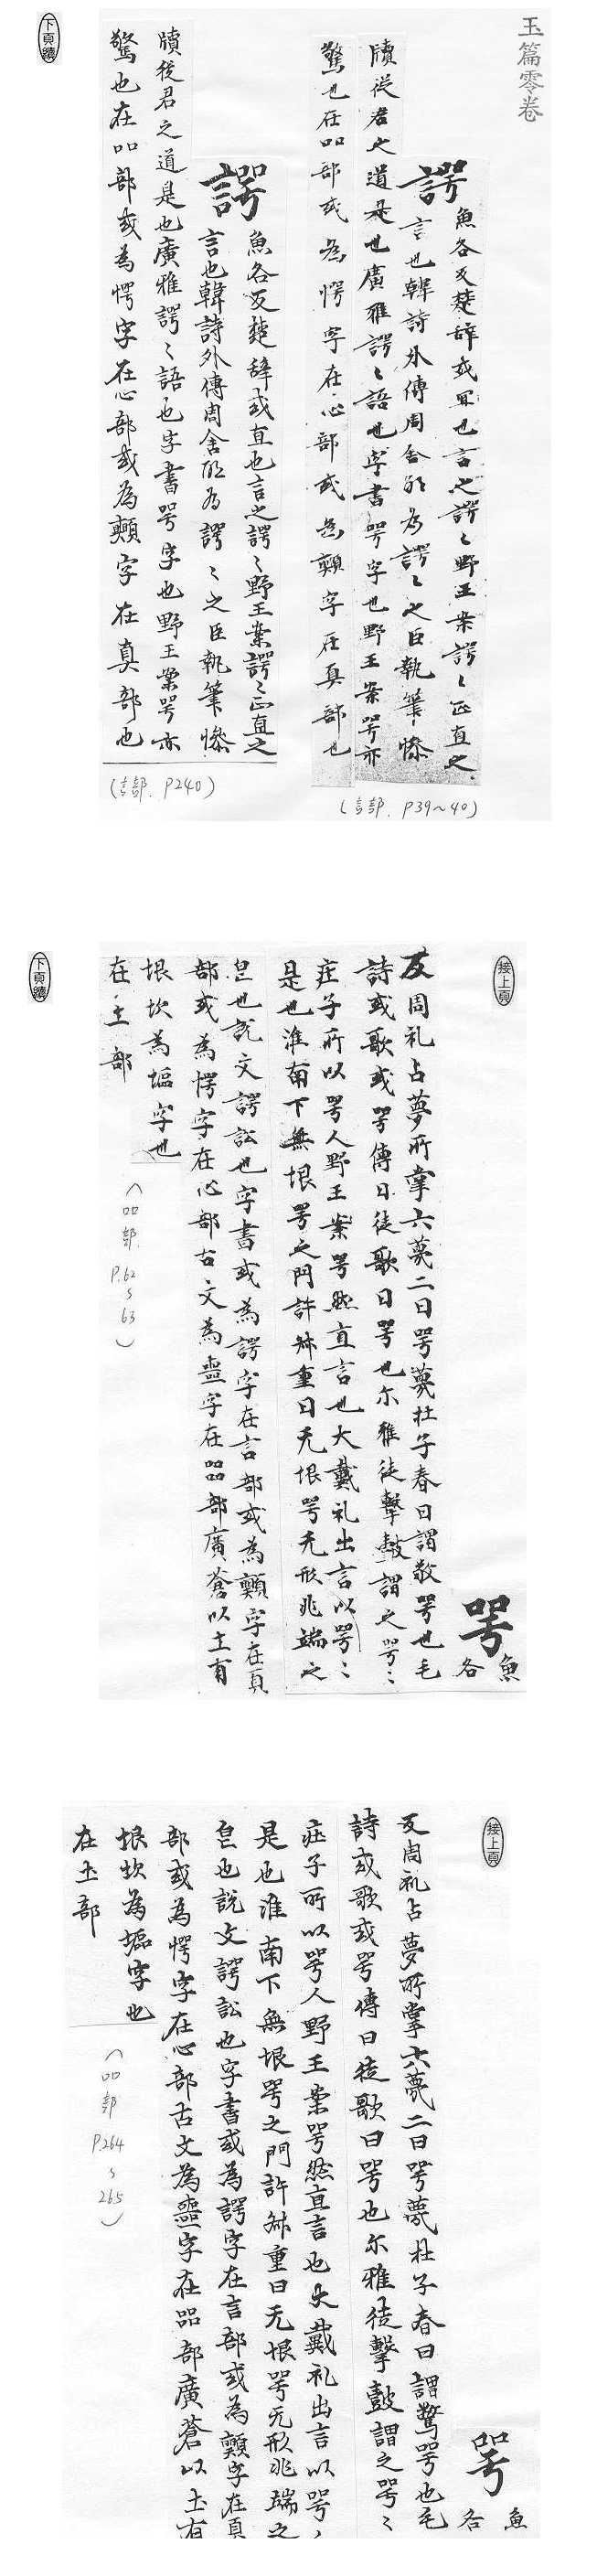 玉篇零卷
諤
魚各反楚辞或直也言之諤〻野王案諤〻正直之
言也韓詩外傳周舍名為諤〻之臣執筆慘
牘從君之道是也廣雅諤〻語也字書咢字也野王案咢亦
驚也在吅部或為愕字在心部或為顎字在頁部也
(言部. P39~40)
諤
魚各反楚辞或直也言之諤〻野王案諤〻正直之
言也韓詩外傳周舍為諤〻之臣執筆慘
牘從君之道是也廣雅諤〻語也字書咢字也野王案咢亦
驚也在吅部或為愕字在心部或為顎字在真部也
(言部. P240)
下頁續
接上頁
咢
魚各
反周礼占夢所掌六夢二曰咢夢杜子春曰謂驚咢也毛
詩或歌或咢傳曰徒歌曰咢也尒雅徒擊鼓謂之咢〻
庄子所以咢人野王案咢然直言也大戴礼出言以咢〻
是也淮南下無垠咢之門許叔重曰无垠咢无形兆端之
皃也説文諤訟也字書或為諤字在言部或為顎字在頁
部或為愕字在心部古文為噩字在㗊部廣蒼以土有
垠坎為堮字也
在土部
(吅部 P.62~63)
下頁續
接上頁
咢
魚各
反周礼占夢所掌六夢二曰咢夢杜子春曰謂驚咢也毛
詩或歌或咢傳曰徒歌曰咢也尒雅徒擊鼓謂之咢〻
庄子所以咢人野王案咢然直言也大戴礼出言以咢〻
是也淮南下無垠咢之門許叔重曰无垠咢无形兆端之
皃也説文諤訟也字書或為諤字在言部或為顎字在頁
部或為愕字在心部古文為噩字在㗊部廣蒼以土有
垠坎為堮字也
在土部
(吅部 P264~265)